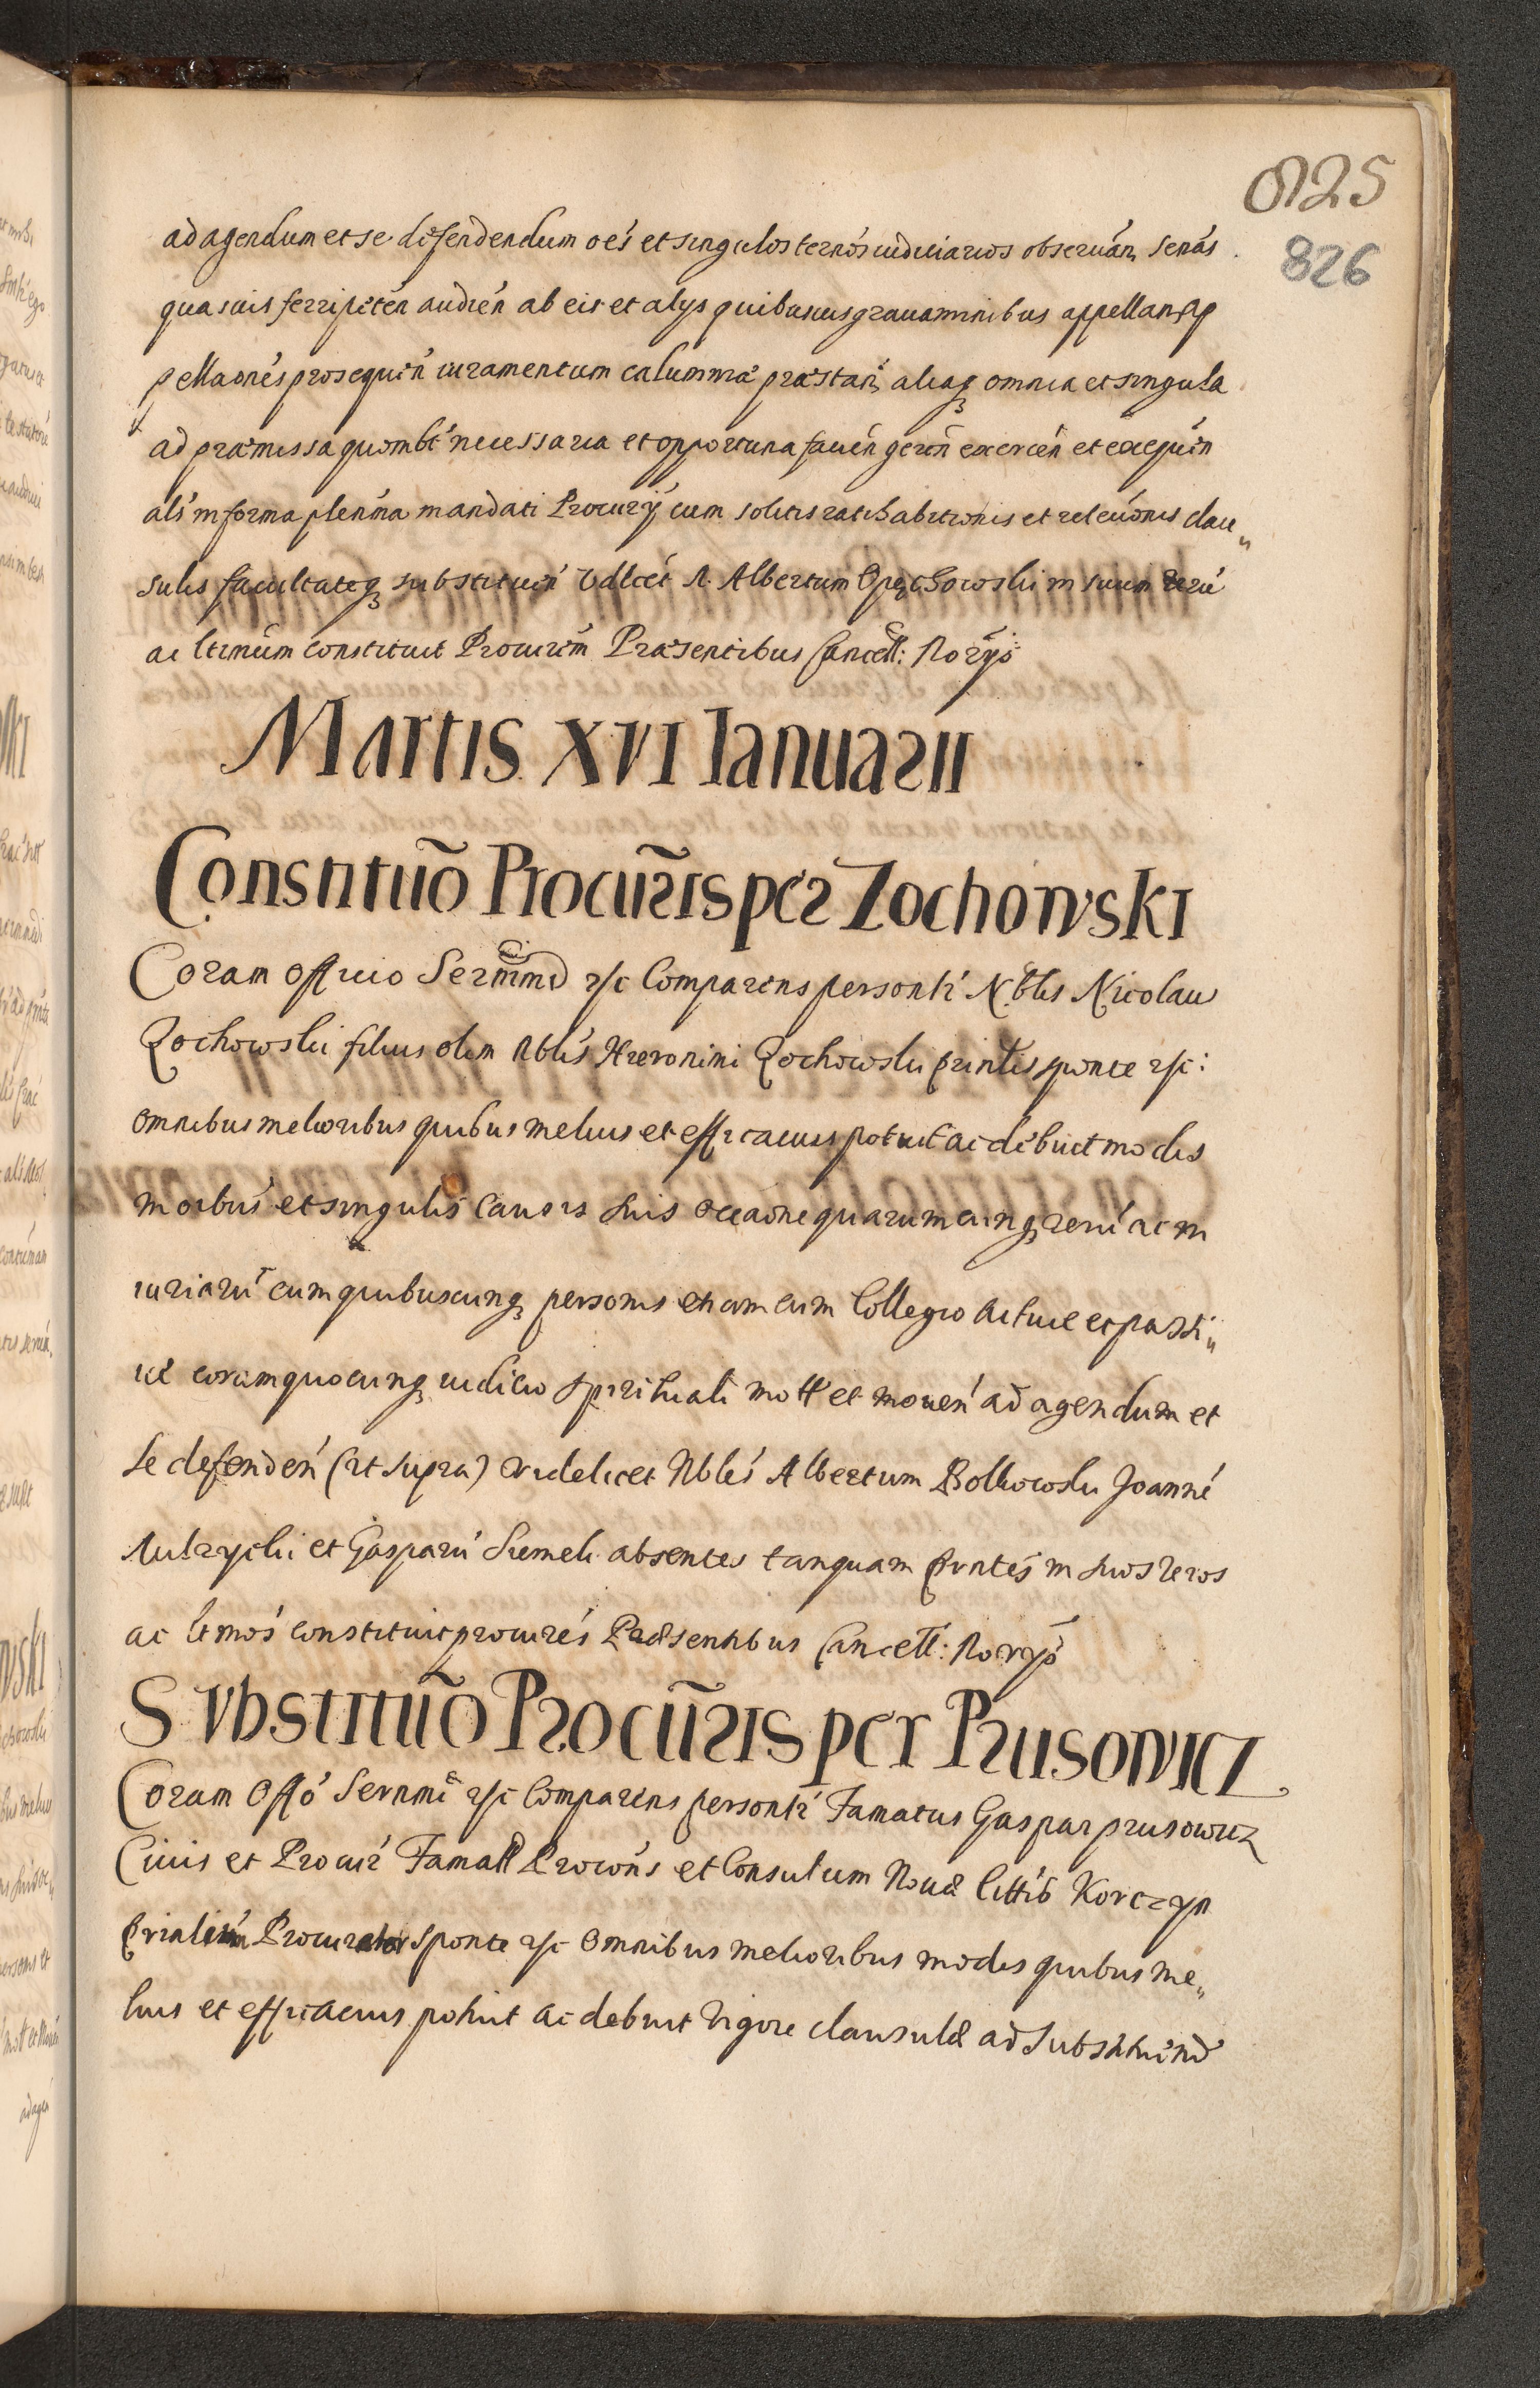 825
826
ad agendum et se defendendum oés et singulos ternós iudiciarios obseruań senás
quasuis ferri petén audién ab eis et alys quibusuis grauaminibus appellań Ap
pellaonés prosequén iuramentum calumniæ præstań aliaq omnia et singula
ad præmissa quomlt necessaria et opportuna facién gerén exercén et exequén
als in forma pleníma mandati Procurÿ cum solitis ratihabitionis et releuónis clau„
sulis facultateq substituén Vdlcét N. Albertum Opęchowski in suum Verú
ac ltimúm constituit Procurém Præsentibus Cancell: Norÿs
Martis XVI Ianuarii
Constituo Procuris per Zochowski
Coram Officio Sernmd etc Comparens personlr Nblis Nicolaus
Zochowski filius olim Nblis Hieronimi Zochowski prinlis sponte etc:
Omnibus melioribus quibus melius et efficacius potuit ac debuit modis
in oibus et singulis Causis suis occaone quarumcunq rerú ac in
iuriarú cum quibuscunq personis etiam cum Collegio Actiue et passi„
ué coram quocunq iudicio spirituali mott et mouén ad agendum et
se defendén (ut supra) videlicet Nblés Albertum Bolkowski Joanné
et Gasparú absentes tanquam prntés in suos Veros
ac ltimós constituit procurés Præsentibus Cancell: Norÿs
Substituo Procuris per Prusowicz
Coram Offo Sernmi etc Comparens personlr Famatus Gaspar prusowicz
Ciuis et Procur Famatt Procons et Consulum Nouæ Cittis Korczyn
Procurator sponte etc Omnibus melioribus modis quibus me„
lius et efficacius potuit ac debuit Vigore clausulæ ad substituénd